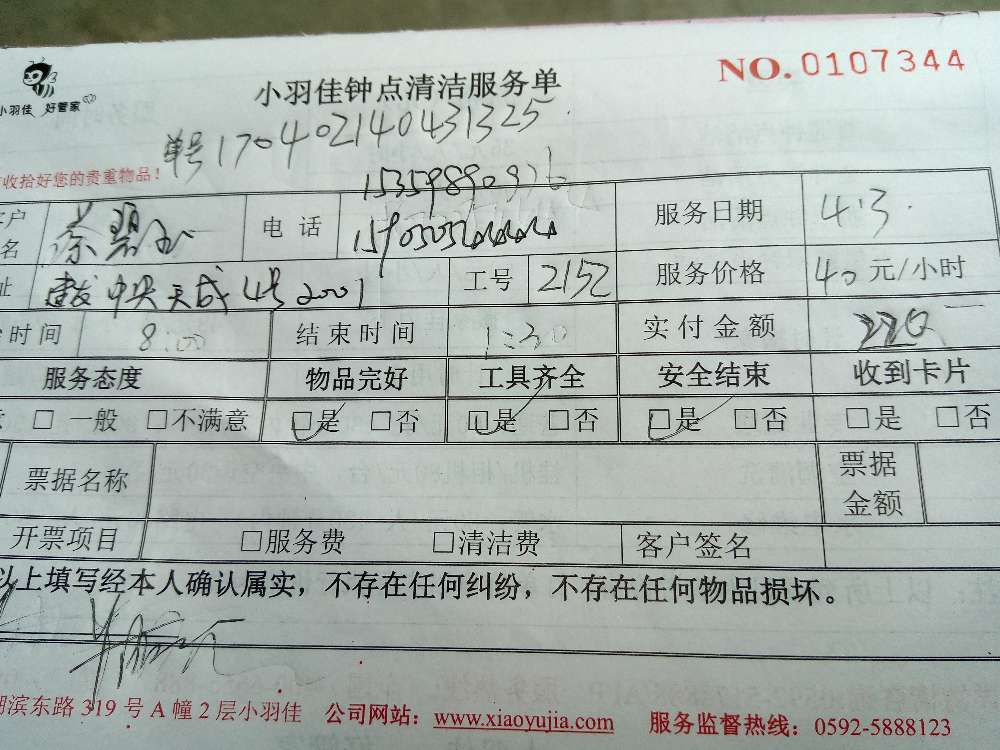 NO.0107344
小羽佳 好管家
小羽佳钟点清洁服务单
单号170402140431325
收拾好您的贵重物品！
15359890976
户名 蔡碧玉 电话 服务日期 4.3.
址 建发中央天成4号2001 工号 2152 服务价格 40元/小时
时间 8:00 结束时间 1:30 实付金额 220
服务态度 物品完好 工具齐全 安全结束 收到卡片
□ 一般 □不满意 □是 □否 □是 □否 □是 □否 □是 □否
票据名称 票据金额
开票项目 □服务费 □清洁费 客户签名
以上填写经本人确认属实，不存在任何纠纷，不存在任何物品损坏。
湖滨东路319号A幢2层小羽佳 公司网站：www.xiaoyujia.com 服务监督热线：0592-5888123